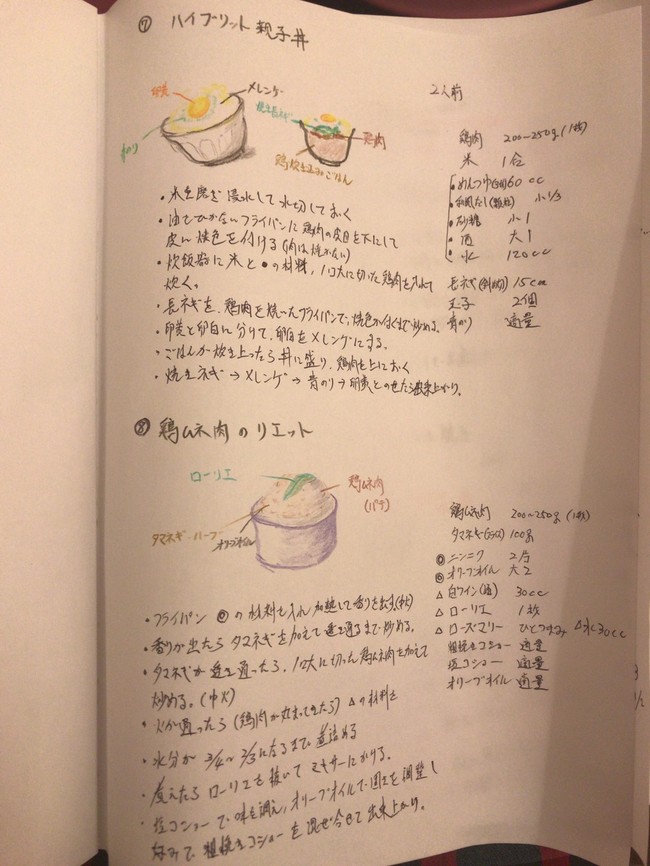 ⑦ ハイブリット親子丼
卵黄
メレンゲ
焼き長ネギ
鶏肉
鶏炊き込みごはん
2人前
鶏肉 200~250g (1枚)
米 1合
・めんつゆ 60cc
・和風だし(顆粒) 小1/3
・砂糖 小1
・酒 大1
・水 120cc
長ネギ(斜切) 15cm
玉子 2個
青のり 適量
・米を磨ぎ浸水して水切しておく
・油をひかないフライパンに鶏肉の皮目を下にして
皮に焼色を付ける(肉は焼かない)
・炊飯器に米と●の材料、1口大に切った鶏肉を入れて
炊く。
・長ネギを、鶏肉を焼ったフライパンで、焼色が付くまで炒める。
・卵黄と卵白に分けて、卵白をメレンゲにする。
・ごはんが炊き上ったら丼に盛り、鶏肉を上におく
・焼きネギ→メレンゲ→青のり→卵黄とのせたら出来上がり。
⑧ 鶏ムネ肉のリエット
ローリエ
鶏ムネ肉
(パテ)
タマネギ・ハーブ
オリーブオイル
鶏ムネ肉 200~250g (1枚)
タマネギ 100g
◎ニンニク 2片
◎オリーブオイル 大2
△白ワイン 30cc
△ローリエ 1枚
△ローズマリー ひとつまみ △水30cc
粗挽きコショー 適量
塩コショー 適量
オリーブオイル 適量
・フライパン ◎の材料を入れ加熱して香りを出す(中火)
・香りが出たらタマネギを加えて透き通るまで炒める。
・タマネギが透き通ったら、1口大に切った鶏ムネ肉を加えて
炒める。(中火)
・火が通ったら(鶏肉が丸まってきたら)△の材料を
・水分が3/4~2/3になるまで煮詰める
・煮えたらローリエを抜いてミキサーにかける。
・塩コショーで味を調え、オリーブオイルで固さを調整し
好みで粗挽きコショーを混ぜ合せて出来上がり。